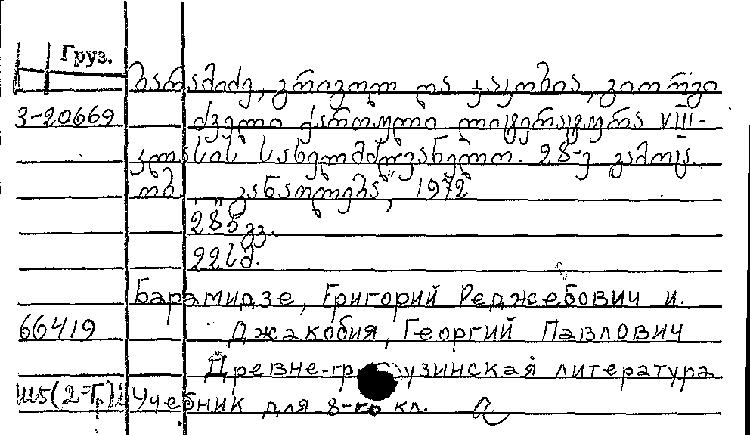 Груз.
ბარამიძე, გრიგოლ და ჯაკობია, გიორგი
3-20669 ძველი ქართული ლიტერატურა VIII-
კლასის სახელმძღვანელო. 28-ე გამოც.
თბ., "განათლება", 1972
288 გვ.
22 სმ.
Барамидзе, Григорий Реджебович и.
66419 Джакобия, Георгий Павлович
Древне-грузинская литература
Ш5(2-Г) Учебник для 8-го кл.